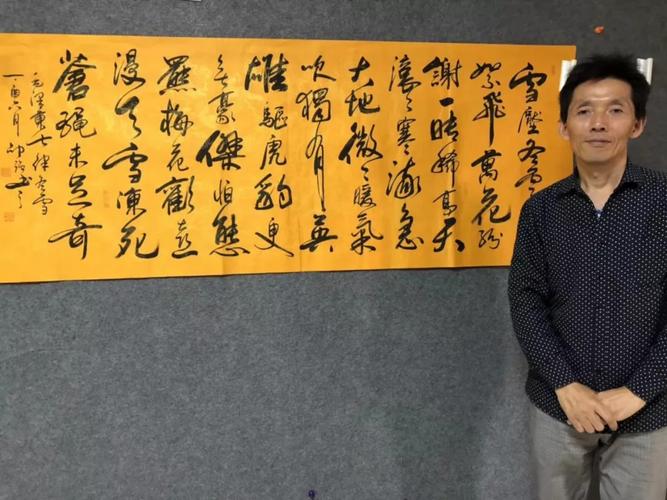 雪壓冬雲
絮飛萬花紛
謝一時稀高天
滾〻寒流急
大地微〻暖氣
吹獨有英
雄驅虎豹更
無豪傑怕熊
羆梅花歡喜
漫天雪凍死
蒼蠅未足奇
毛澤東七律冬雲
丁酉六月